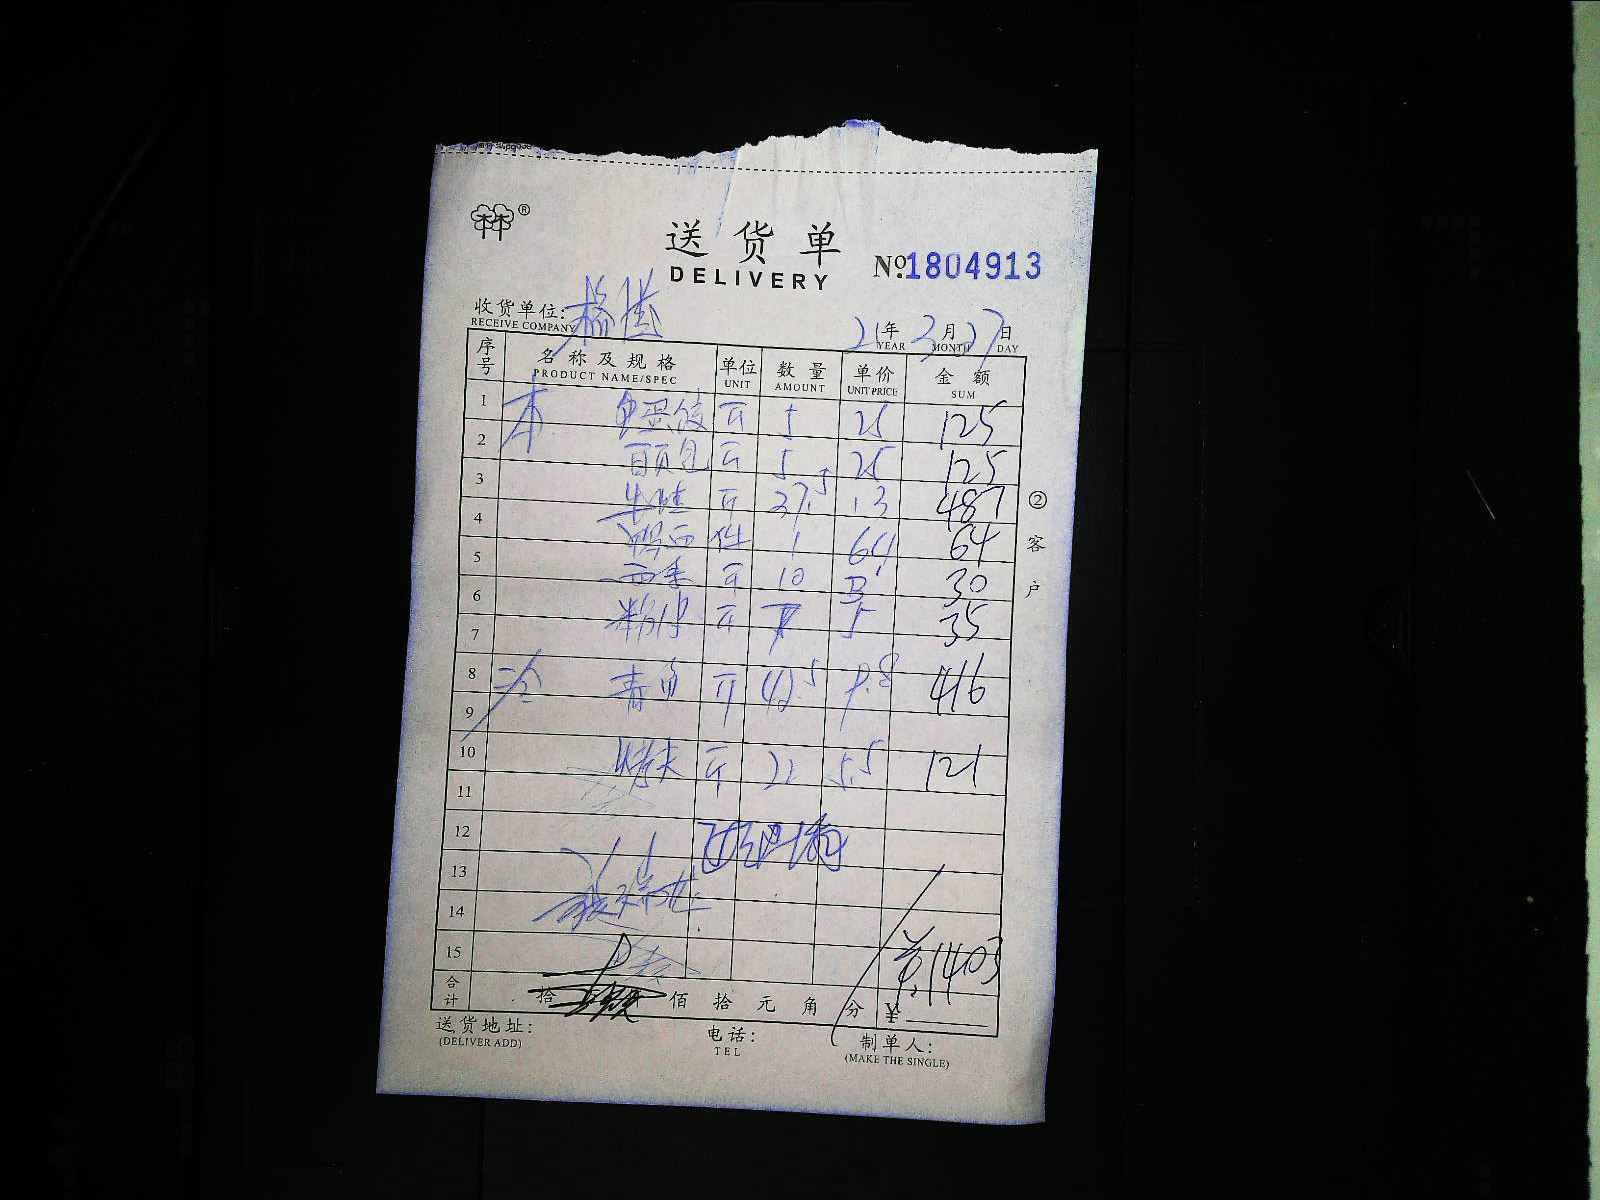 送货单
DELIVERY
№1804913
收货单位:
RECEIVE COMPANY
21年3月27日
YEAR MONTH DAY
序号 名称及规格 单位 数量 单价 金额
PRODUCT NAME/SPEC UNIT AMOUNT UNIT PRICE SUM
1 本 斤 5 25 125
2 百页包 斤 5 25 125
3 牛蛙 斤 37.5 13 487
4 件 1 64 64
5 斤 10 3 30
6 斤 7 5 35
7
8 冷 青鱼 斤 42.5 9.8 416
9
10 斤 22 5.5 121
11
12
13
14
15 1403
合计 拾 佰 拾 元 角 分 ¥
送货地址:
(DELIVER ADD)
电话:
TEL
制单人:
(MAKE THE SINGLE)
②客户